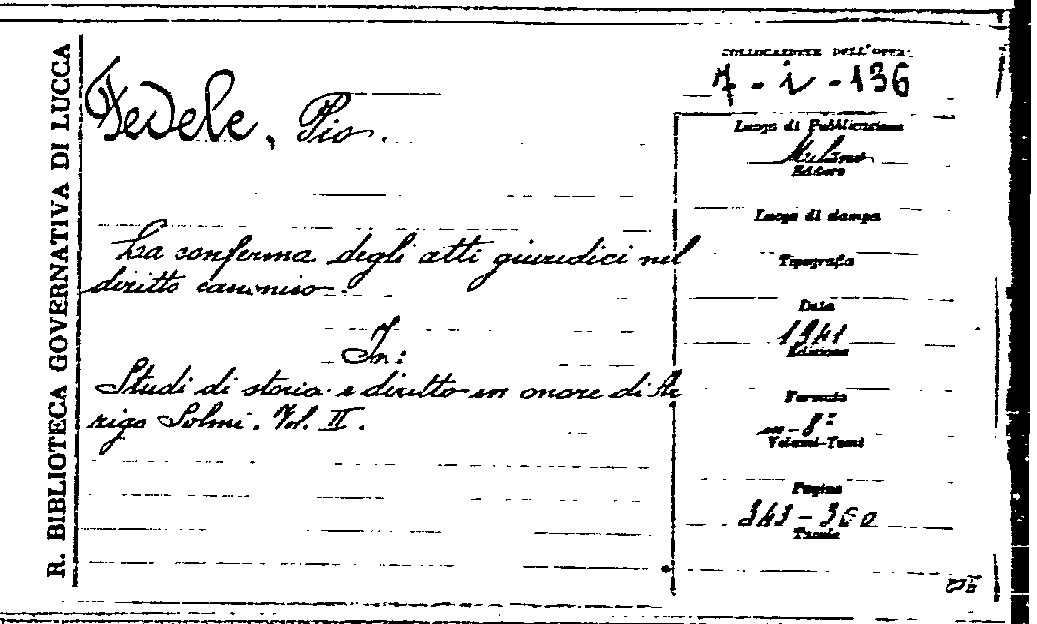 R. BIBLIOTECA GOVERNATIVA DI LUCCA
Fedele, Pio.
La conferma degli atti giuridici nel
diritto canonico.
In:
Studi di storia e diritto in onore di Ar
rigo Solmi. Vol. II.
COLLOCAZIONE DELL'OPERA
7 - i - 136
Luogo di Pubblicazione
Milano
Editore
Luogo di stampa
Tipografia
Data
1941
Edizione
Formato
in-8°
Volumi-Tomi
Pagine
343-360
Tavole